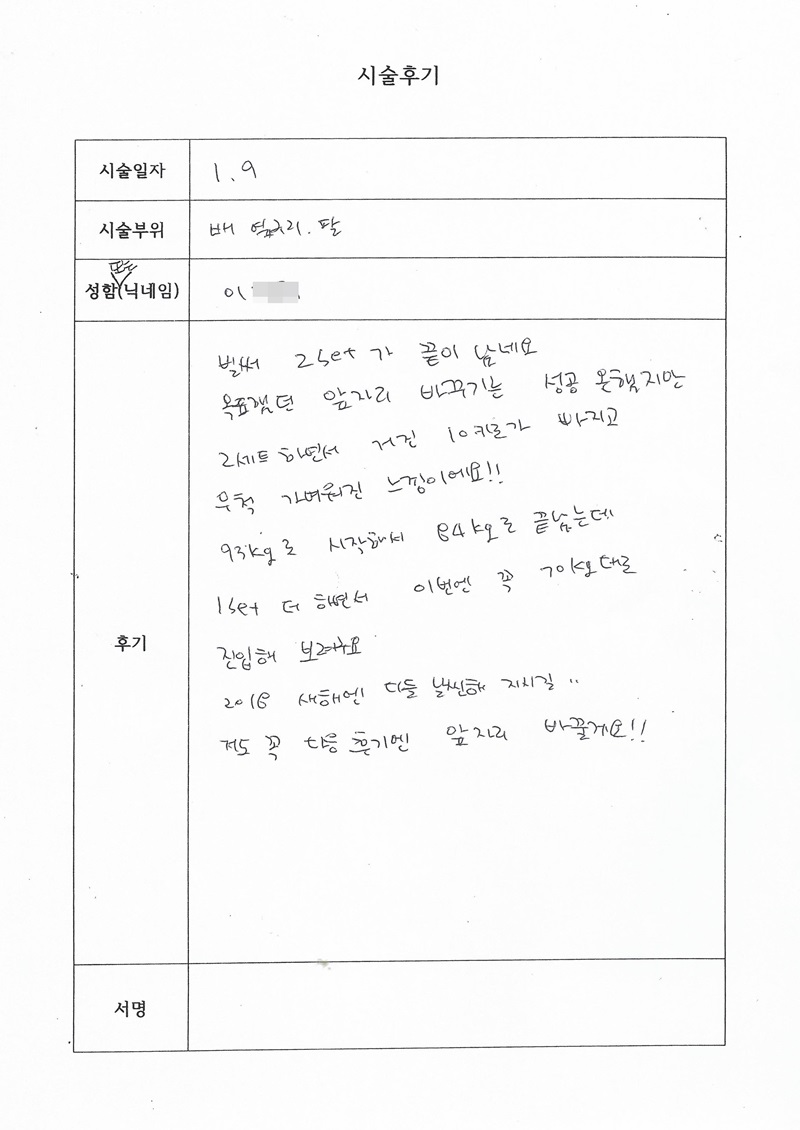 시술후기
시술일자
1. 9
시술부위
배 옆구리. 팔
또는
성함(닉네임)
이
후기
벌써 2set가 끝이 났네요
목표했던 앞자리 바꾸기는 성공 못했지만
2세트 하면서 거진 10키로가 빠지고
무척 가벼워진 느낌이에요!!
93kg로 시작해서 84kg로 끝났는데
1set 더 하면서 이번엔 꼭 70kg대로
진입해 보려구요
2018 새해엔 다들 날씬해 지시길 ..
저도 꼭 다음 후기엔 앞자리 바꿀게요!!
서명